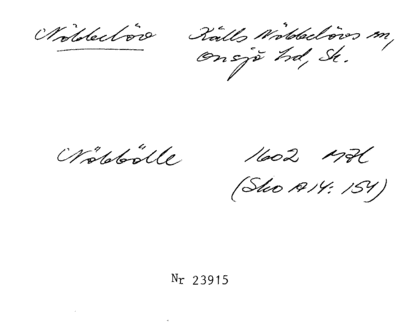 Nöbbelöv Källs Nöbbelövs sn,
Onsjö hd, Sk.
Nöbbölle 1602 MH
(Sko A14: 154)
Nr 23915